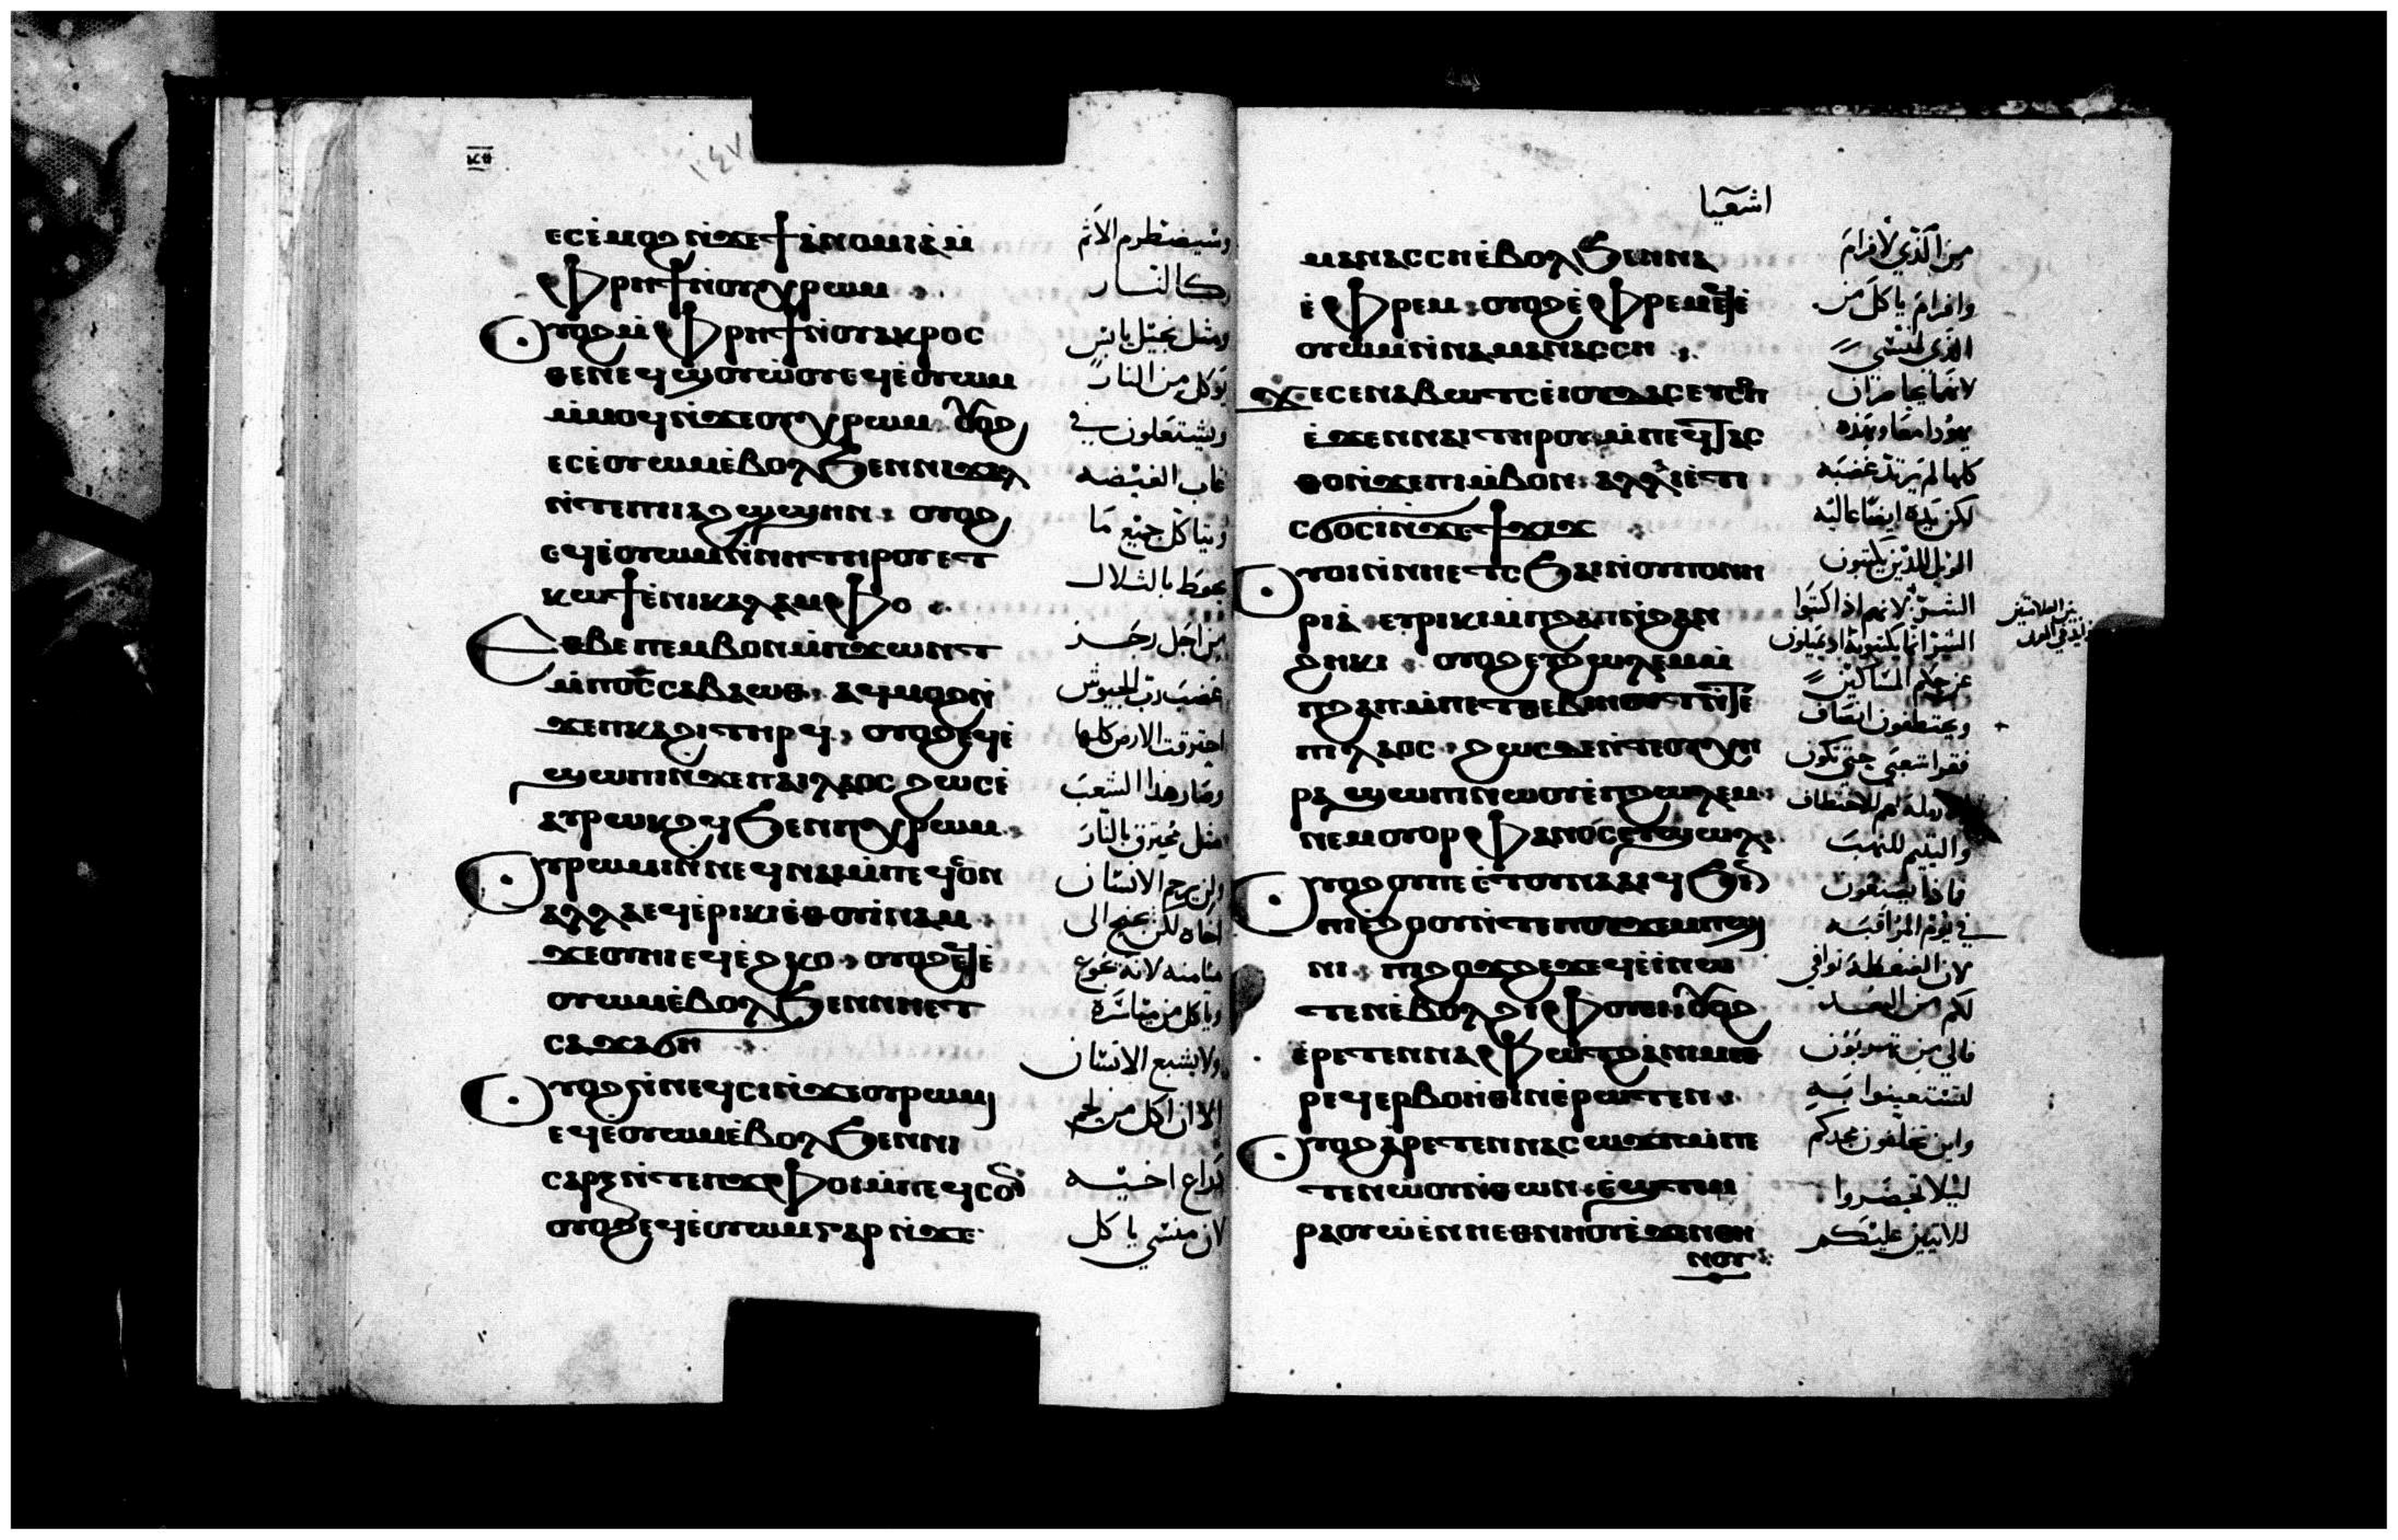 ⲉⲥⲉ̀ⲙⲟϩ ⲛ̀ϫⲉϯⲁⲛⲟⲙⲓⲁ ⲙ̀
ⲫⲣⲏϯ ⲛ̀ⲟⲩⲭⲣⲱⲙ
ⲟⲩⲟϩ ⲙ̀ⲫⲣⲏϯ ⲛ̀ⲟⲩⲁⲕⲣⲟⲥ
ⲙ̀ⲙⲟϥ ⲛ̀ϫⲉⲟⲩⲭⲣⲱⲙ
ⲉⲥⲉ̀ⲟⲩⲱⲙ ⲉ̀ⲃⲟⲗ ϧⲉⲛ
ⲛ̀ⲧⲉⲡⲓⲁϩϣϣⲏⲛ ⲟⲩⲟϩ
ⲉϥⲉ̀ⲟⲩⲱⲙ ⲛ̀ⲛⲏ ⲧⲏⲣⲟⲩ ⲉⲧ
ⲕⲱϯ ⲉ̀ⲛⲓⲕⲁⲗⲁⲙⲫⲟ
ⲉⲑⲃⲉ ⲡⲉⲙⲃⲟⲛ ⲙ̀ⲡϫⲱⲛⲧ
ⲙ̀ⲡⲟ̅ⲥ̅ ⲥⲁⲃⲁⲱⲑ ⲁϥⲙⲟϩ ⲛ̀
ϫⲉⲡⲕⲁϩⲓ ⲧⲏⲣϥ ⲟⲩⲟϩ ⲉϥⲉ̀
ϣⲱⲡⲓ ⲛ̀ϫⲉⲡⲁⲓⲗⲁⲟⲥ ϩⲱⲥ ⲉ̀
ⲁⲩⲣⲱⲕϩϥ ϧⲉⲛⲡⲓⲭⲣⲱⲙ
ⲟⲩⲣⲱⲙⲓ ⲛ̀ⲛⲉϥⲛⲁⲓ ⲙ̀ⲡⲉϥⲥⲟⲛ
ⲁⲗⲗⲁ ⲉϥⲉ̀ⲣⲓⲕⲓ ⲉ̀ⲟⲩⲓⲛⲁⲙ
ϫⲉⲟⲩⲏⲓ ⲉϥⲉ̀ϩⲕⲟ ⲟⲩⲟϩ ⲉϥⲉ̀
ⲟⲩⲱⲙ ⲉ̀ⲃⲟⲗ ϧⲉⲛⲛⲉⲧ
ⲥⲁϫⲁϭⲏ
ⲟⲩⲟϩ ⲛ̀ⲛⲉϥⲥⲓ ⲛ̀ϫⲉⲟⲩⲣⲱⲙⲓ
ⲉϥⲉ̀ⲟⲩⲱⲙ ⲉ̀ⲃⲟⲗ ϧⲉⲛⲛⲓ
ⲥⲁⲣⲝ ⲛ̀ⲧⲉⲡϫⲫⲟⲓ ⲙ̀ⲡⲉϥⲥⲟⲛ
ⲟⲩⲟϩ ⲉϥⲉ̀ⲟⲩⲱⲙ ⲅⲁⲣ ⲛ̀ϫⲉ
وسيضطرم الاثم
كالنار
ومثل نجيل يابس
يوكل من النار
ويشتعلون في
غاب الغيضه
وياكل جميع ما
يحوط بالتلال
من اجل رجز
غضب رب الجيوش
احترقت الارض كلها
وصار هذا الشعب
مثل محترق بالنار
ولن يرحم الانسان
اخاه لكن يجنح الى
ميامنه لانه يجوع
وياكل من مياسره
ولا يشبع الانسان
الا ان اكل من لحم
ذراع اخيه
لان منسي ياكل
اشعيا
ⲙⲁⲛⲁⲥⲥⲏ ⲉ̀ⲃⲟⲗ ϧⲉⲛⲛⲁ
ⲉ̀ⲫⲣⲉⲙ ⲟⲩⲟϩ ⲉ̀ⲫⲣⲉⲙ ⲉϥⲉ̀
ⲟⲩⲱⲙ ⲛ̀ⲛⲁⲙⲁⲛⲁⲥⲥⲏ
ϫⲉ ⲥⲉⲛⲁⲃⲱⲧⲥ ⲉ̀ⲓⲟⲩⲇⲁ ⲥⲉⲩⲥⲟⲡ
ⲉ̀ϫⲉⲛⲛⲁⲓ ⲧⲏⲣⲟⲩ ⲙ̀ⲡⲉϥⲧⲁⲥ
ⲑⲟ ⲛ̀ϫⲉⲡⲓⲙ̀ⲃⲟⲛ ⲁⲗⲗⲁ ⲉ̀ⲧⲓ
ⲥϭⲟⲥⲓ ⲛ̀ϫⲉϯϫⲓϫ
ⲟⲩⲟⲓ ⲛ̀ⲛⲏⲉⲧⲥϧⲁⲓ ⲛ̀ⲟⲩⲡⲟⲛⲏ
ⲣⲓⲁ ⲉⲩⲣⲓⲕⲓ ⲙ̀ⲡϩⲁⲡ ⲛ̀ϩⲁⲛ
ϩⲏⲕⲓ ⲟⲩⲟϩ ⲉⲧϩⲱⲗⲉⲙ ⲙ̀
ⲡϩⲁⲡ ⲙ̀ⲡⲉⲧⲑⲉⲃⲓⲏⲟⲩⲧ ⲛ̀ⲧⲉ
ⲡⲓⲗⲁⲟⲥ ϩⲱⲥⲇⲉ ⲛ̀ⲧⲉⲟⲩⲭⲏ
ⲣⲁ ϣⲱⲡⲓ ⲛⲱⲟⲩ ⲉ̀ⲡϩⲱⲗⲉⲙ
ⲛⲉⲙ ⲟⲩⲟⲣⲫⲁⲛⲟⲥ ⲉ̀ⲡϣⲱⲗ
ⲟⲩⲟϩ ⲟⲩ ⲡⲉⲧⲟⲩⲛⲁⲁⲓϥ ϧⲉⲛ
ⲡⲓⲉ̀ϩⲟⲟⲩ ⲛ̀ⲧⲉⲡⲟⲩϫⲉⲙⲡϣⲓ
ⲛⲓ ⲡϩⲟϫϩⲉϫ ⲉϥⲉ̀ⲓ̀ ⲛⲱ
ⲧⲉⲛ ⲉ̀ⲃⲟⲗ ϩⲓⲫⲟⲩⲉⲓ ⲟⲩⲟϩ
ⲉ̀ⲣⲉⲧⲉⲛⲛⲁⲫⲱⲧ ϩⲁⲛⲓⲙ
ⲣⲉϥⲉⲣⲃⲟⲏ̀ⲑⲓⲛ ⲉ̀ⲣⲱⲧⲉⲛ
ⲟⲩⲟϩ ⲁ̀ⲣⲉⲧⲉⲛⲛⲁⲥⲱϫⲡ ⲙ̀ⲡⲉ
ⲧⲉⲛⲱ̀ⲟⲩ ⲛ̀ⲑⲱⲛ ⲉ̀ϣⲧⲉⲙ
ⲣⲁⲟⲩⲱ̀ ⲉ̀ⲛⲏⲉⲑⲛⲏⲟⲩ ⲉ̀ϫⲉⲛⲑⲏ
ⲛⲟⲩ
من الذي لافرام
وافرام ياكل من
الذي لمنسي
لانهما يحاصران
يهودا معا وبهذه
كلها لم يرتد غضبه
لكن يده ايضا عاليه
الويل للذين يكتبون
الشر لانهم اذا كتبوا
الشر انما يكتبونه اذ يميلون
عن حكم المساكين
ويختطفون انصاف
فقرا شعبي حتى تكون
ارمله لهم للاختطاف
واليتيم للنهب
فماذا يصنعون
في يوم المراقبه
لان الضغطه توافي
لكم من البعد
فالي من تهربون
لتستعينوا به
واين تخلفون مجدكم
ليلا تحضروا
للاتيين عليكم